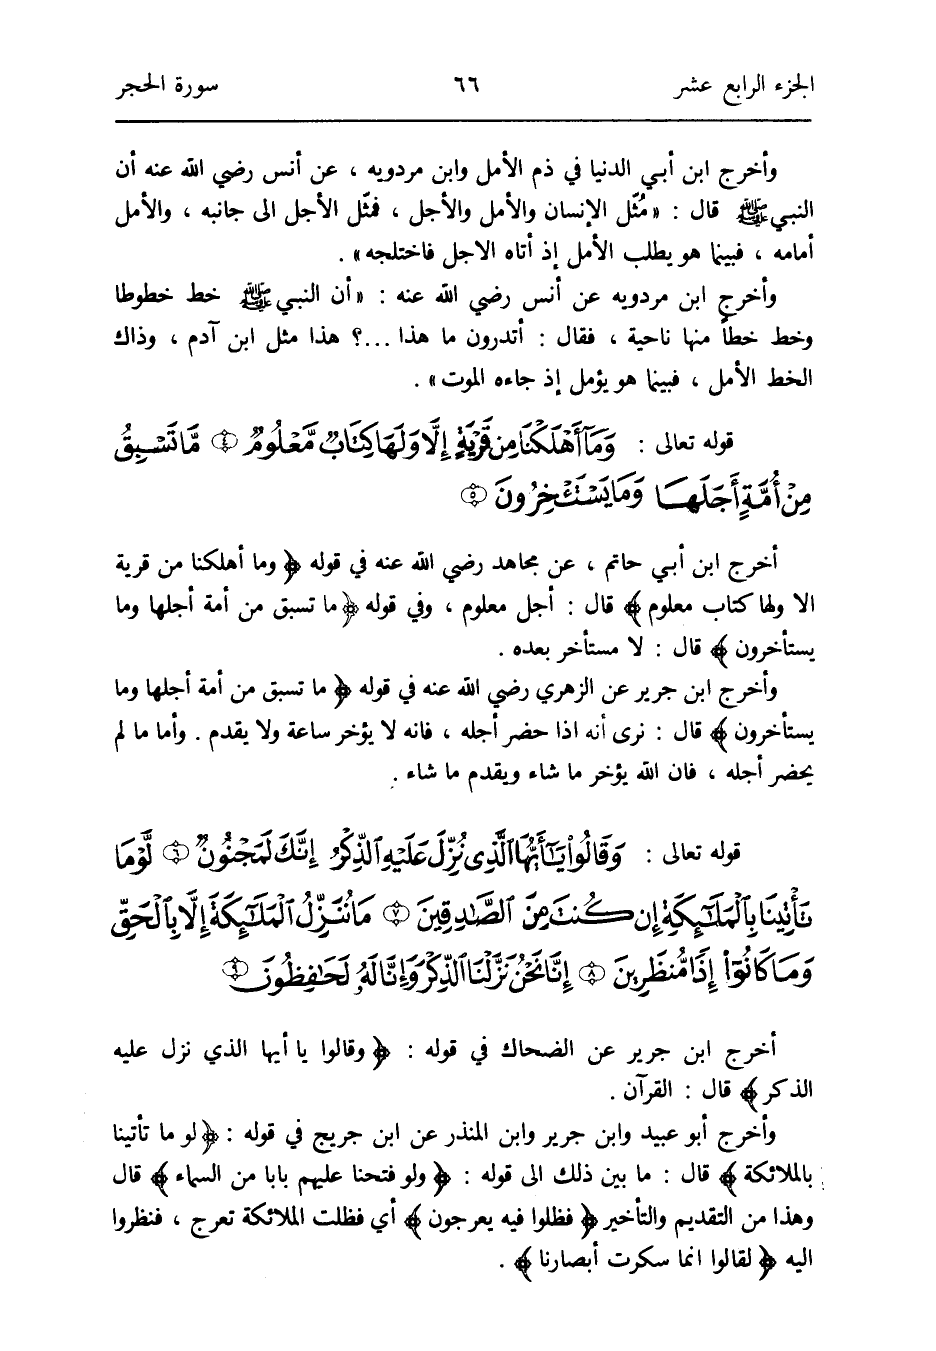 الجزء الرابع عشر ٦٦ سورة الحجر
وأخرج ابن أبي الدنيا في ذم الأمل وابن مردويه ، عن أنس رضي الله عنه أن
النبي ﷺ قال : «مُثّل الإنسان والأمل والأجل ، فمثّل الأجل الى جانبه ، والأمل
أمامه ، فبينما هو يطلب الأمل إذ أتاه الاجل فاختلجه» .
وأخرج ابن مردويه عن أنس رضي الله عنه : «أن النبي ﷺ خط خطوطا
وخط خطاً منها ناحية ، فقال : أتدرون ما هذا ...؟ هذا مثل ابن آدم ، وذاك
الخط الأمل ، فبينما هو يؤمل إذ جاءه الموت» .
قوله تعالى : وَمَآ أَهْلَكْنَا مِن قَرْيَةٍ إِلَّا وَلَهَا كِتَابٌ مَّعْلُومٌ ﴿٤﴾ مَّا تَسْبِقُ
مِنْ أُمَّةٍ أَجَلَهَا وَمَا يَسْتَـْٔخِرُونَ ﴿٥﴾
أخرج ابن أبي حاتم ، عن مجاهد رضي الله عنه في قوله ﴿ وما أهلكنا من قرية
الا ولها كتاب معلوم ﴾ قال : أجل معلوم ، وفي قوله ﴿ ما تسبق من أمة أجلها وما
يستأخرون ﴾ قال : لا مستأخر بعده .
وأخرج ابن جرير عن الزهري رضي الله عنه في قوله ﴿ ما تسبق من أمة أجلها وما
يستأخرون ﴾ قال : نرى أنه اذا حضر أجله ، فانه لا يؤخر ساعة ولا يقدم . وأما ما لم
يحضر أجله ، فان الله يؤخر ما شاء ويقدم ما شاء .
قوله تعالى : وَقَالُوا۟ يَـٰٓأَيُّهَا ٱلَّذِى نُزِّلَ عَلَيْهِ ٱلذِّكْرُ إِنَّكَ لَمَجْنُونٌ ﴿٦﴾ لَّوْمَا
تَأْتِينَا بِٱلْمَلَـٰٓئِكَةِ إِن كُنتَ مِنَ ٱلصَّـٰدِقِينَ ﴿٧﴾ مَا نُنَزِّلُ ٱلْمَلَـٰٓئِكَةَ إِلَّا بِٱلْحَقِّ
وَمَا كَانُوٓا۟ إِذًا مُّنظَرِينَ ﴿٨﴾ إِنَّا نَحْنُ نَزَّلْنَا ٱلذِّكْرَ وَإِنَّا لَهُۥ لَحَـٰفِظُونَ ﴿٩﴾
أخرج ابن جرير عن الضحاك في قوله : ﴿ وقالوا يا أيها الذي نزل عليه
الذكر ﴾ قال : القرآن .
وأخرج أبو عبيد وابن جرير وابن المنذر عن ابن جريج في قوله : ﴿ لو ما تأتينا
بالملائكة ﴾ قال : ما بين ذلك الى قوله : ﴿ ولو فتحنا عليهم بابا من السماء ﴾ قال
وهذا من التقديم والتأخير ﴿ فظلوا فيه يعرجون ﴾ أي فظلت الملائكة تعرج ، فنظروا
اليه ﴿ لقالوا انما سكرت أبصارنا ﴾ .